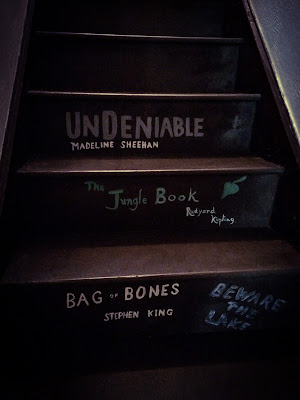 UNDENIABLE
MADELINE SHEEHAN
The Jungle Book
Rudyard
Kipling
BAG OF BONES
STEPHEN KING
BEWARE
THE
LAKE